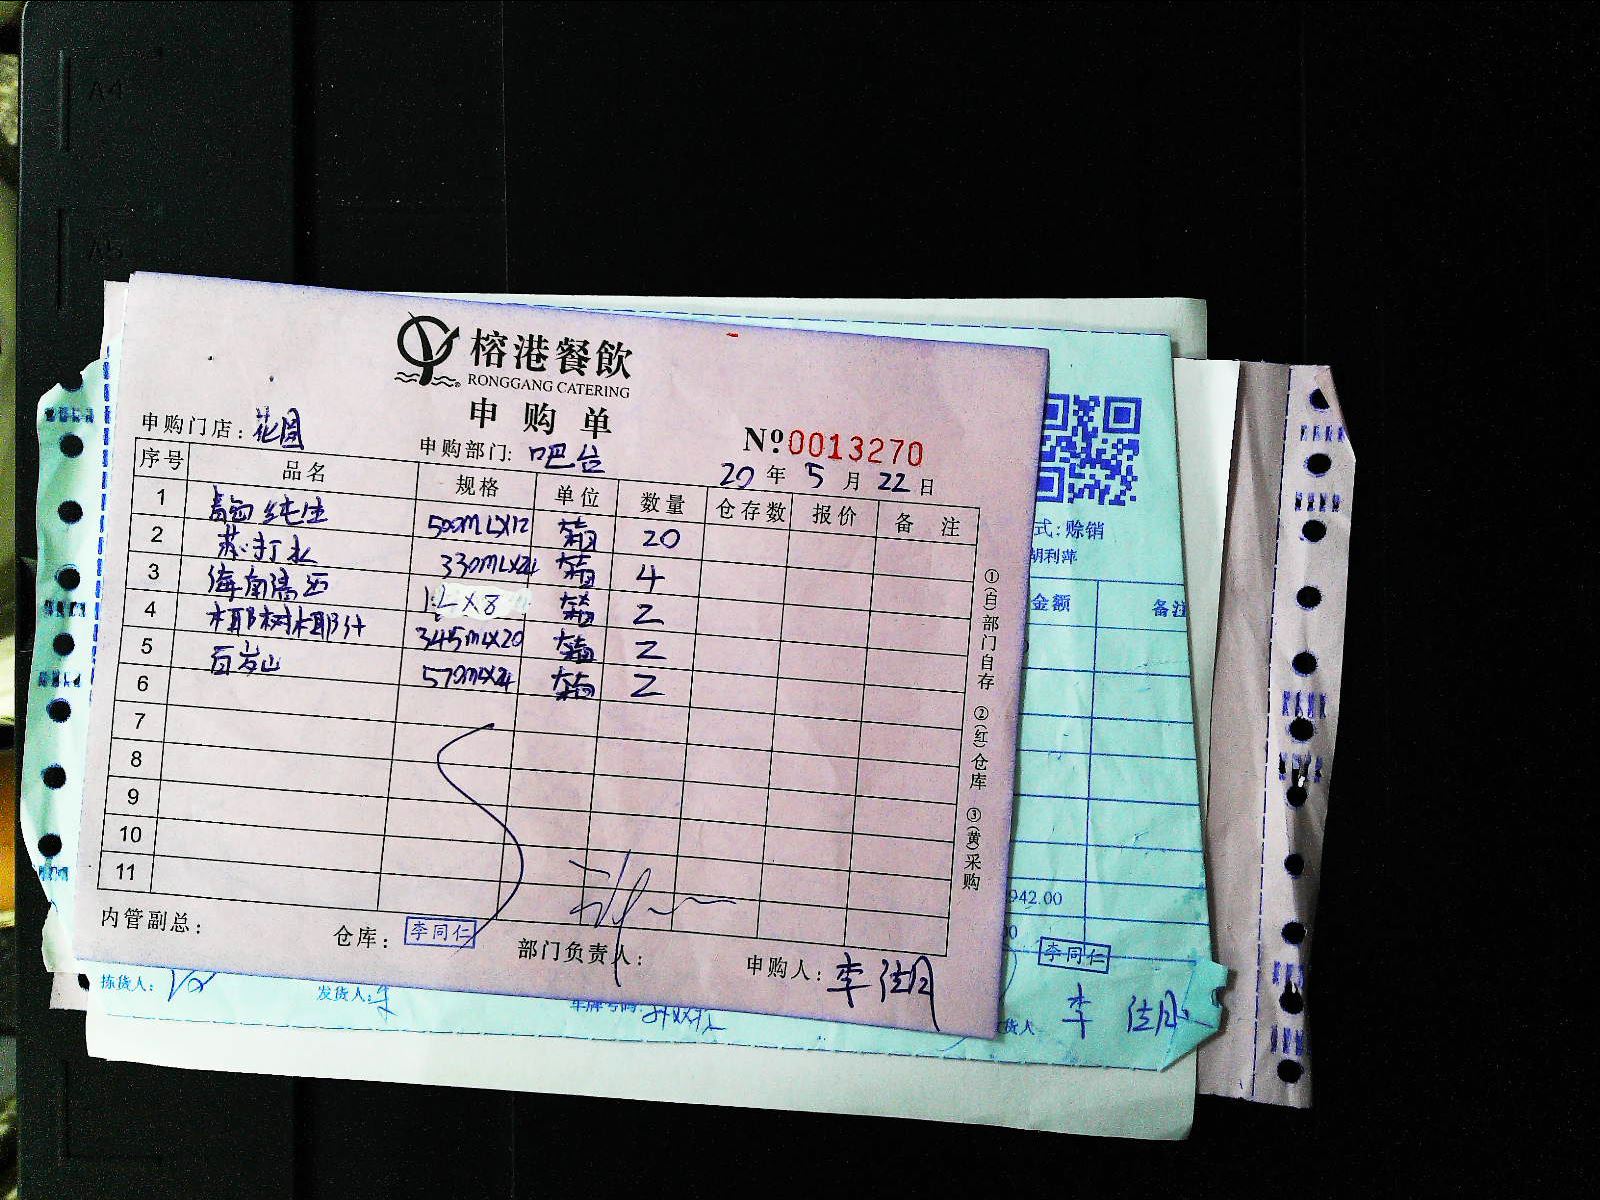 榕港餐飲
RONGGANG CATERING
申购单
申购门店: 花园 申购部门: 吧台 №0013270
20年5月22日
序号 品名 规格 单位 数量 仓存数 报价 备注
1 纯生 500ML×12 箱 20
2 苏打水 330ML×24 箱 4
3 海南 ×8 箱 2
4 椰树椰汁 345ml×20 箱 2
5 百岁山 570ml×24 箱 2
6
7
8
9
10
11
内管副总: 仓库: 李同仁 部门负责人: 申购人: 李佳月
①(白)部门自存 ②(红)仓库 ③(黄)采购
式: 赊销
胡利萍
金额 备注
942.00
李同仁
拣货人: 发货人: 车牌号码: 货人 李佳月
A4
A5